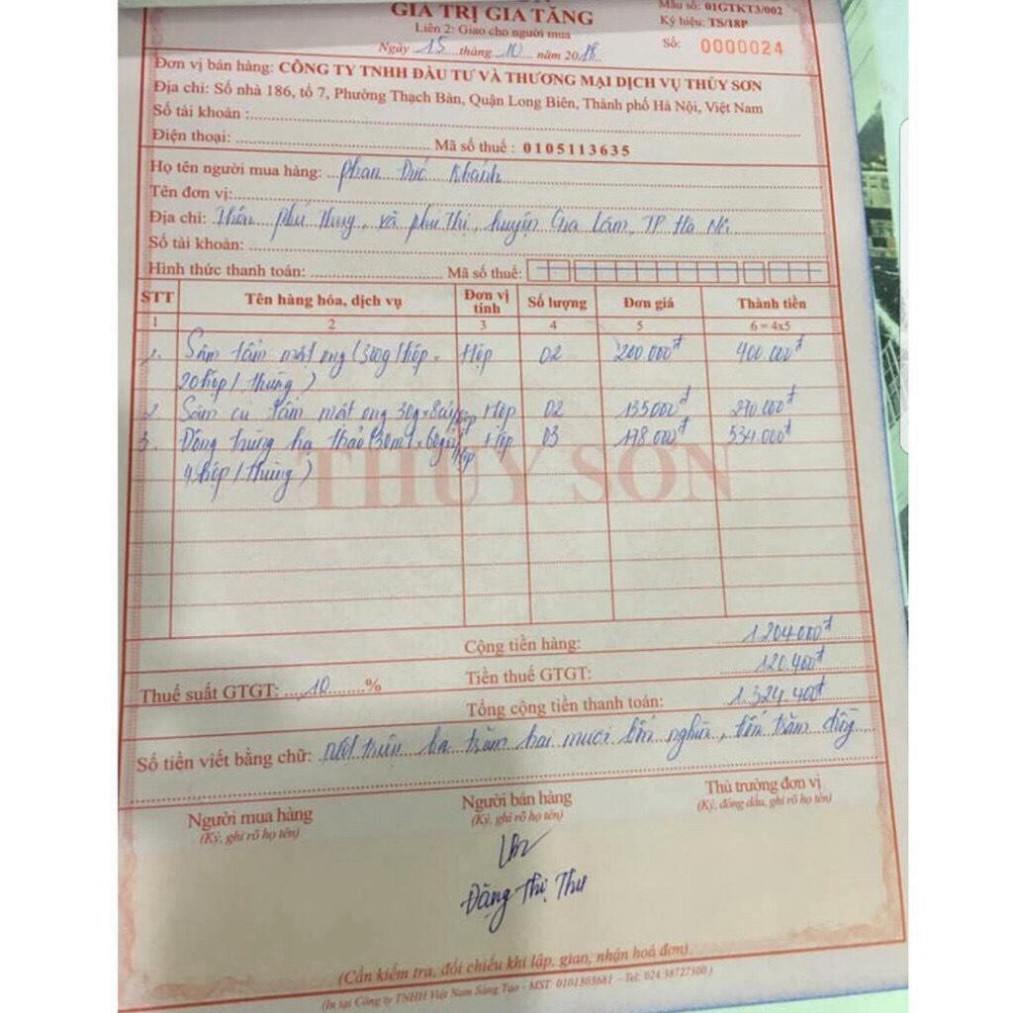 GIÁ TRỊ GIA TĂNG
Mẫu số: 01GTKT3/002
Liên 2: Giao cho người mua
Ký hiệu: TS/18P
Ngày 15 tháng 10 năm 2018
Số: 0000024
Đơn vị bán hàng: CÔNG TY TNHH ĐẦU TƯ VÀ THƯƠNG MẠI DỊCH VỤ THỦY SƠN
Địa chỉ: Số nhà 186, tổ 7, Phường Thạch Bàn, Quận Long Biên, Thành phố Hà Nội, Việt Nam
Số tài khoản :
Điện thoại: Mã số thuế : 0105113635
Họ tên người mua hàng: Phan Đức Khánh
Tên đơn vị:
Địa chỉ: Thôn Phú Thụy, xã Phú Thị, huyện Gia Lâm, TP Hà Nội
Số tài khoản:
Hình thức thanh toán: Mã số thuế:
STT Tên hàng hóa, dịch vụ Đơn vị tính Số lượng Đơn giá Thành tiền
1 2 3 4 5 6 = 4x5
1. Sâm tẩm mật ong (300g/hộp × Hộp 02 200.000đ 400.000đ
20hộp/thùng)
2 Sâm củ tẩm mật ong 30g×8củ/hộp Hộp 02 135000đ 270.000đ
3. Đông trùng hạ thảo (30ml×60gói/hộp Hộp 03 178.000đ 534.000đ
4 hộp/thùng)
THỦY SƠN
Cộng tiền hàng: 1.204.000đ
Thuế suất GTGT: 10 % Tiền thuế GTGT: 120.400đ
Tổng cộng tiền thanh toán: 1.324.400đ
Số tiền viết bằng chữ: Một triệu ba trăm hai mươi bốn nghìn, bốn trăm đồng
Người mua hàng Người bán hàng Thủ trưởng đơn vị
(Ký, ghi rõ họ tên) (Ký, ghi rõ họ tên) (Ký, đóng dấu, ghi rõ họ tên)
Đặng Thị Thư
(Cần kiểm tra, đối chiếu khi lập, giao, nhận hoá đơn)
(In tại Công ty TNHH Việt Nam Sáng Tạo - MST: 0101303681 - Tel: 024 38727300)